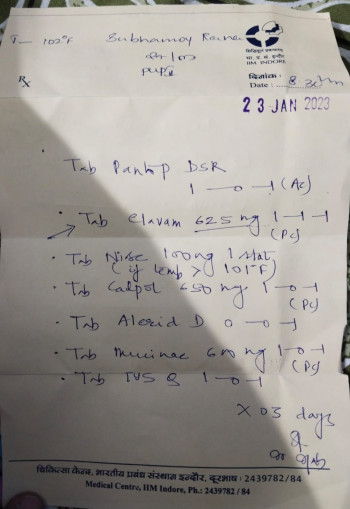 T - 102°F Subhamoy
चिकित्सा केन्द्र
भा. प्र. सं. इन्दौर
IIM INDORE
दिनांक :
Rx Date :
23 JAN 2023
Tab Pantop DSR
1 - 0 - 1 (Ac)
Tab Clavam 625 mg 1-1-1
(Pc)
Tab Nise 100 mg 1 stat
(if temp > 101°F)
Tab Calpol 650 mg 1-0-1
(Pc)
Tab Alerid D 0-0-1
Tab Mucinac 600 mg 1-0-1
(Pc)
Tab 1-0-1
X 03 days
चिकित्सा केन्द्र, भारतीय प्रबंध संस्थान इन्दौर, दूरभाष : 2439782/84
Medical Centre, IIM Indore, Ph.: 2439782 / 84